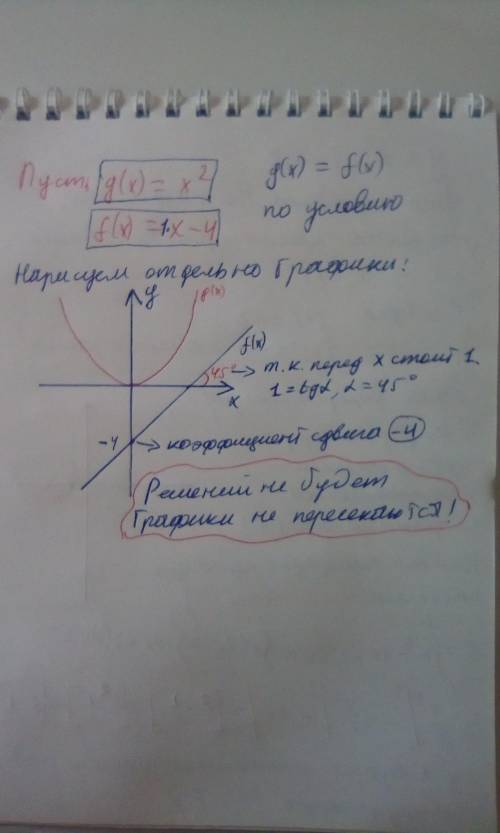 Пусть g(x) = x²
g(x) = f(x)
f(x) = 1·x – 4
по условию
Нарисуем отдельно графики:
y
g(x)
f(x)
45°
т.к. перед x стоит 1.
x
1 = tgα, α = 45°
-4
коэффициент сдвига -4
Решений не будет
Графики не пересекаются!